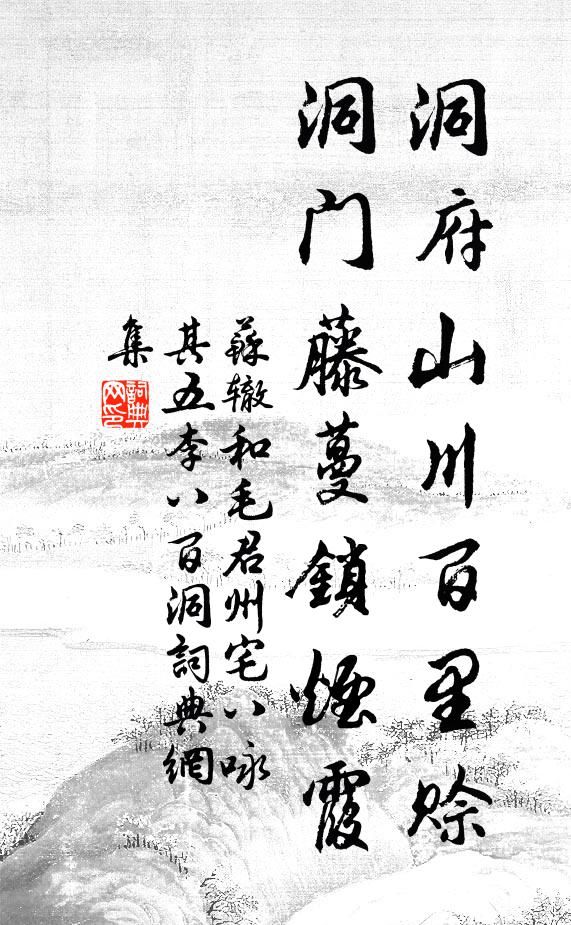 洞府山川百里赊
洞门藤蔓鎖煙霞
蘇辙和毛君州宅八咏
其五李八百洞詞典網
集
詞典网印